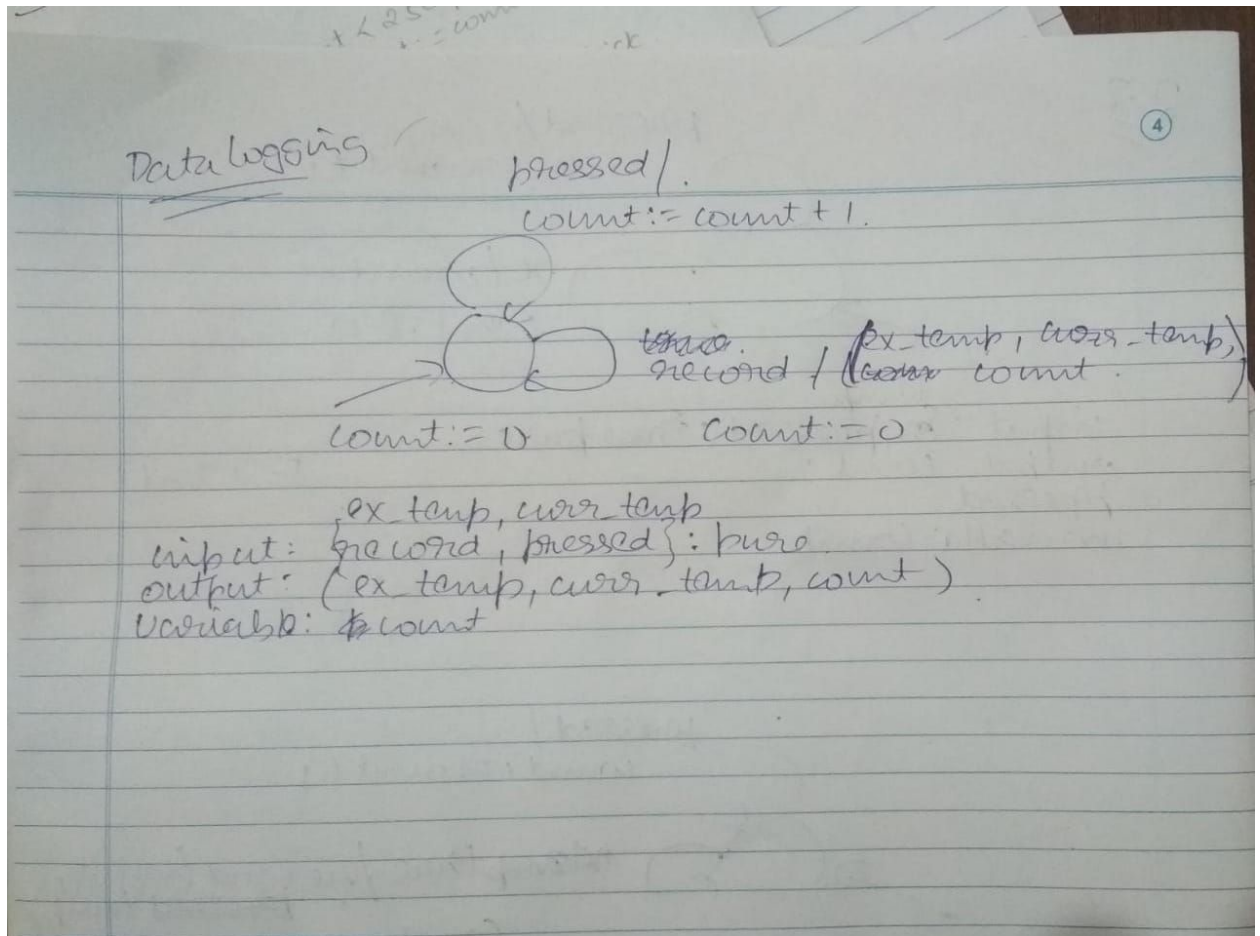 4
Data Logging
pressed/.
count:= count + 1.
record / (ex_temp, curr_temp, count.)
count:= 0
count:= 0.
ex_temp, curr_temp
input: {record, pressed}: pure
output: (ex_temp, curr_temp, count)
variable: count